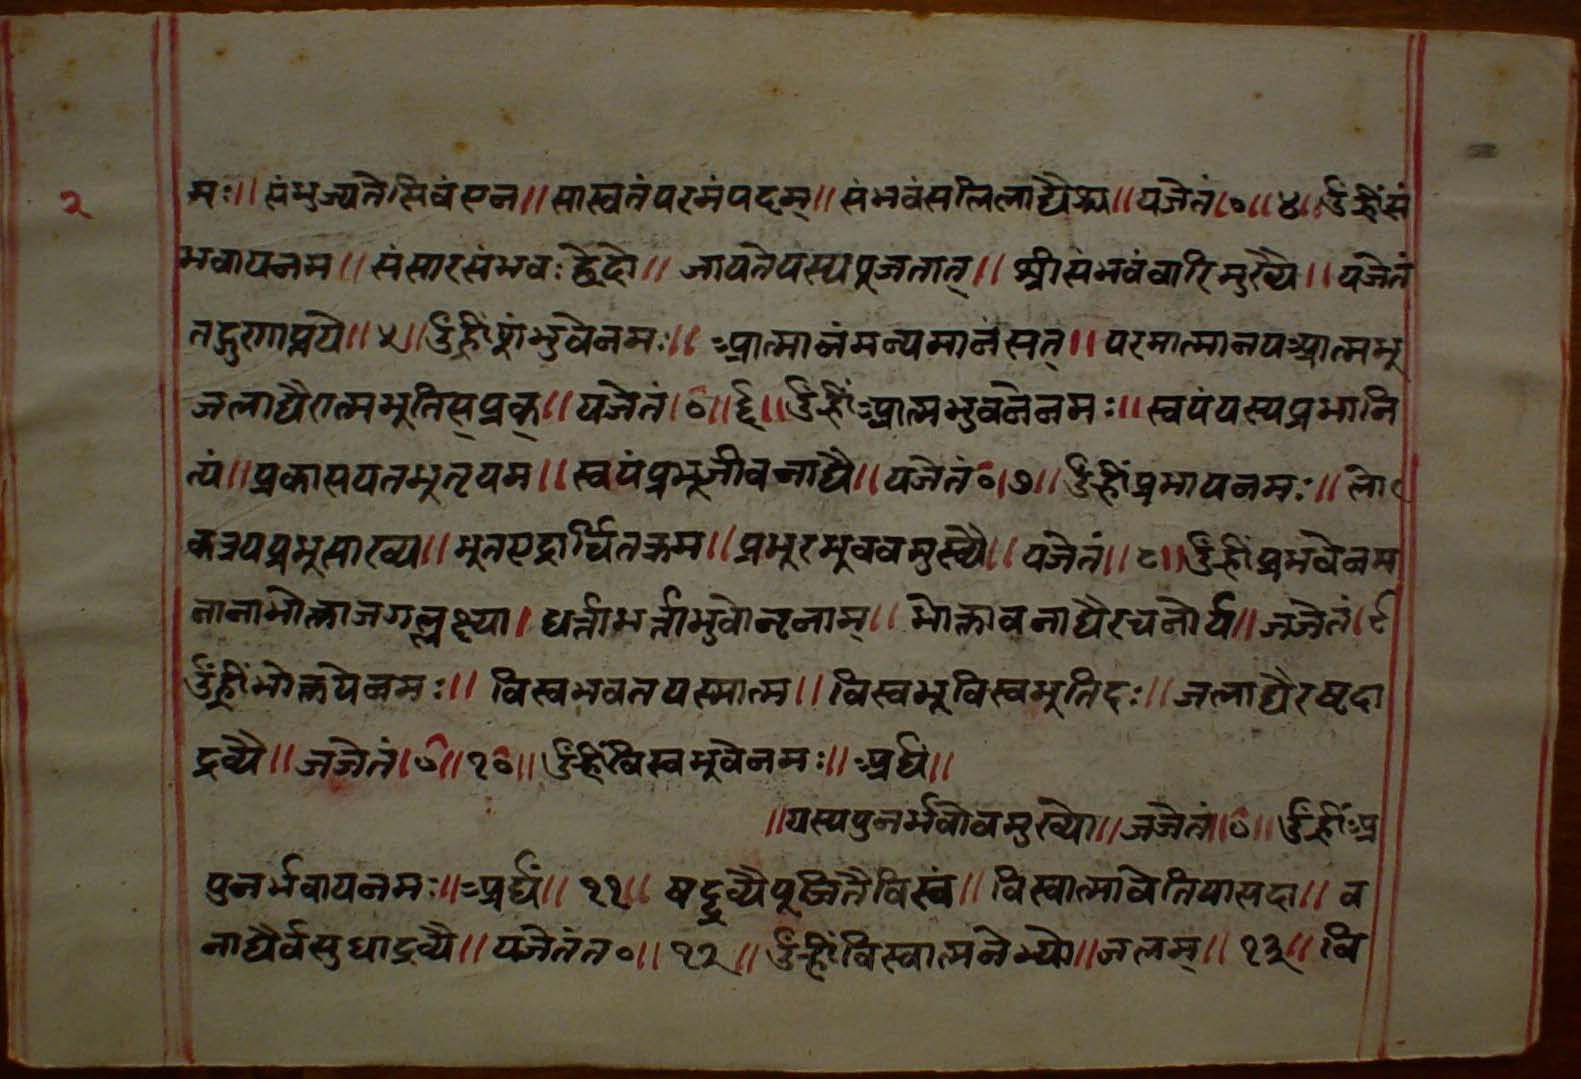 २
मः॥ संभुज्यते सिवं एन॥ सास्वतं परमं पदम्॥ संभवं सलिलाद्यै॥ यजेतं।०॥ ४॥ उँ ह्रीं सं
भवायनम॥ संसारसंभवः द्वेदो॥ जायते यस्य पूजतात्॥ श्रीसंभवं वारिमुख्यै॥ यजेतं
तद्गुणाप्तये॥ ५॥ उँ ह्रीं भुवेनमः॥ आत्मानं मन्यमानं सत्॥ परमात्मानप आत्मभू
जलाद्यैरात्मभुतिस्प्रक्॥ यजेतं।०॥ ६॥ उँ ह्रीं आत्मभुवनेनमः॥ स्वयं यस्य प्रभानि
त्यं॥ प्रकासयतभुतृयम॥ स्वयं प्रभूजीवनाद्यै॥ यजेतं०।७॥ उँ ह्रीं प्रभायनमः॥ लो
कत्रयप्रभूसाख्य॥ भूत क्रम॥ प्रभुर मुख्यै॥ यजेतं॥ ८॥ उँ ह्रीं प्रभवेनम
नानाभोक्ताजग ध्या। धर्त्ताभर्त्ताभुवोनृनाम्॥ भोक्ता वनाद्यैरचनोर्य॥ जजेतं।९
उँ ह्रीं भोक्तयेनमः॥ विस्वभवतयस्मात्म॥ विस्वभूविस्वभुतिदः॥ जलाद्यैरष्टदा
द्रव्यै॥ जजेतं।०॥ १०॥ उँ ह्रीं विस्वभुवेनमः॥ अर्घं॥
॥यस्यपुनर्भवोवमुख्यो॥ जजेतं॥०॥ उँ ह्रीं अ
पुनर्भवायनमः॥ अर्घं॥ ११॥ षद्द्रव्यै पूजितै विस्वं॥ विस्वात्मावेतियासदा॥ व
नाद्यैर्वसुधाद्रव्यै॥ यजेतंत०॥ १२॥ उँ ह्रीं विस्वात्मनेभ्यो॥ जलम्॥ १३॥ वि